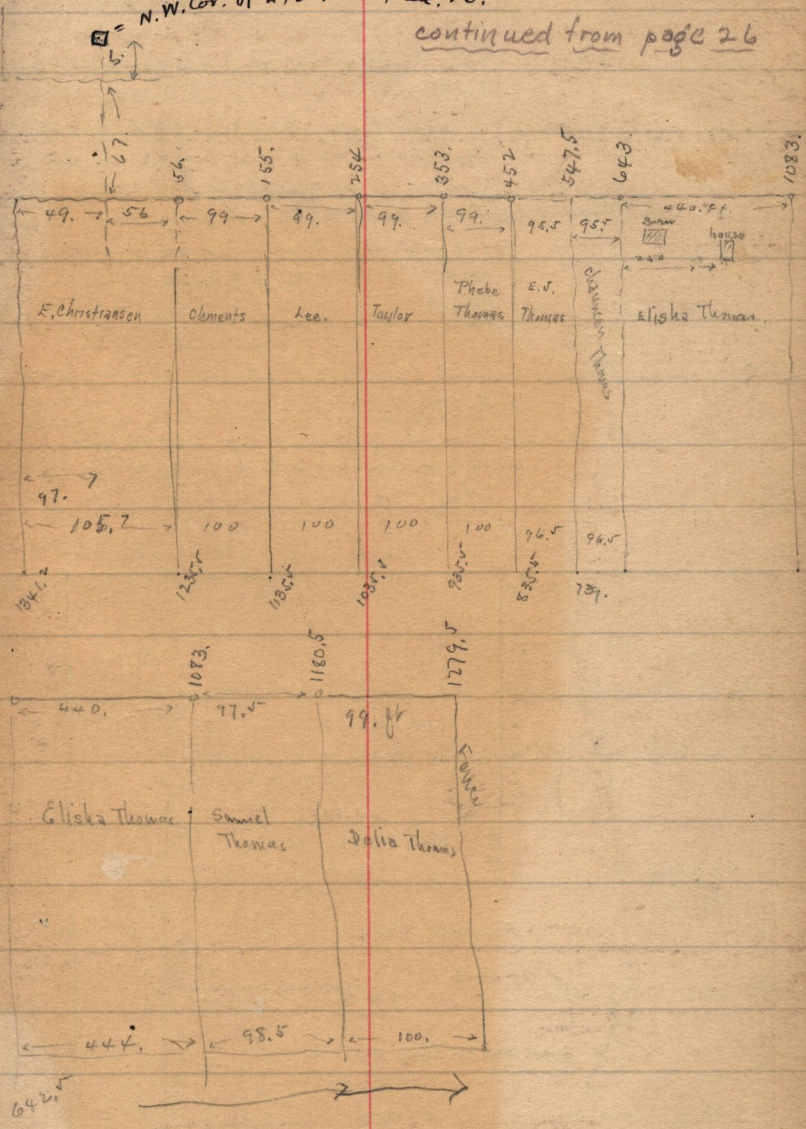 = N.W. Cor. of
continued from page 26
5.
67
56. 155. 254 353. 452 547.5 643. 1083.
49. 56 99 99. 99. 99. 95.5 95.5 440. ft
Barn house
250
E. Christiansen Clements Lee. Taylor Phebe Thomas E.J. Thomas Chauncey Thomas Elisha Thomas.
97.
105.7 100 100 100 100 96.5 96.5
1341.2 1235.5 1135.5 1035.5 935.5 835.5 739.
1083. 1180.5 1279.5
440. 97.5 99. ft
Fence
Elisha Thomas Samuel Thomas Delia Thomas
444. 98.5 100.
642.5